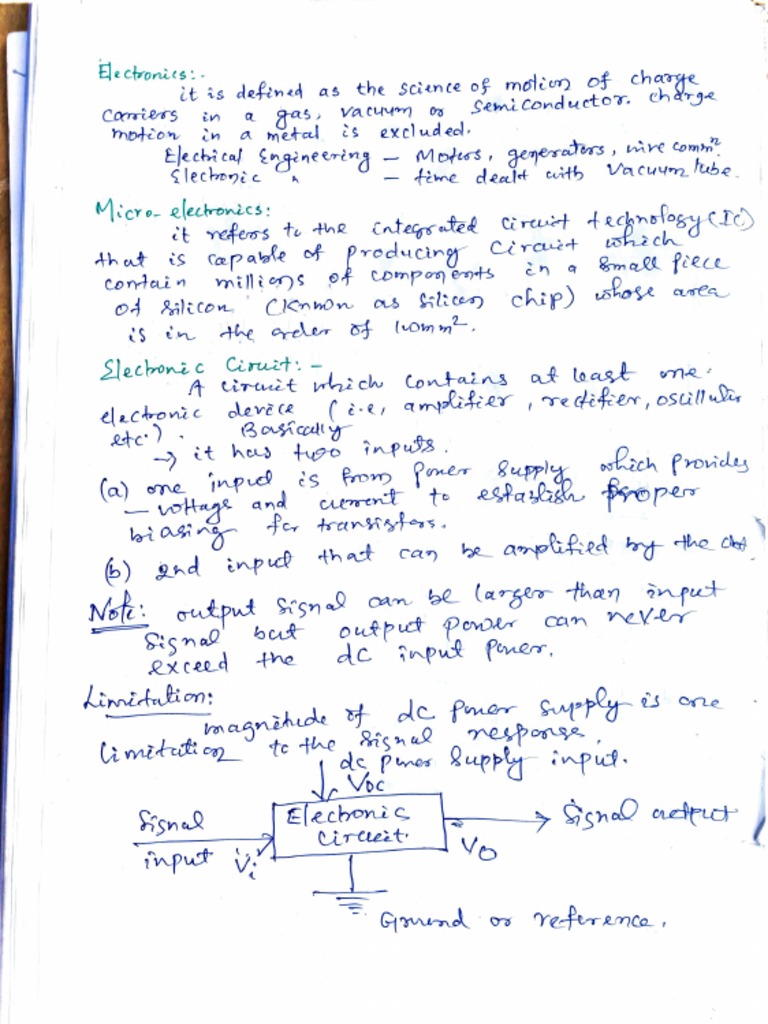 Electronics:-
it is defined as the science of motion of charge
carriers in a gas, vacuum or semiconductor. charge
motion in a metal is excluded.
Electrical Engineering – Motors, generators, wire commⁿ
Electronic " – time dealt with vacuum tube.
Micro-electronics:
it refers to the integrated circuit technology (IC)
that is capable of producing circuit which
contain millions of components in a small piece
of silicon (known as silicon chip) whose area
is in the order of 100mm².
Electronic Circuit: –
A circuit which contains at least one
electronic device (i.e, amplifier, rectifier, oscillator
etc.). Basically
→ it has two inputs.
(a) one input is from power supply which provides
– voltage and current to establish proper
biasing for transistors.
(b) 2nd input that can be amplified by the ckt
Note: output signal can be larger than input
signal but output power can never
exceed the dc input power.
Limitation:
magnitude of dc power supply is one
limitation to the signal response.
dc power supply input.
VDC
Signal
input Vi
Electronic
circuit.
Vo
Signal output
Ground or reference.